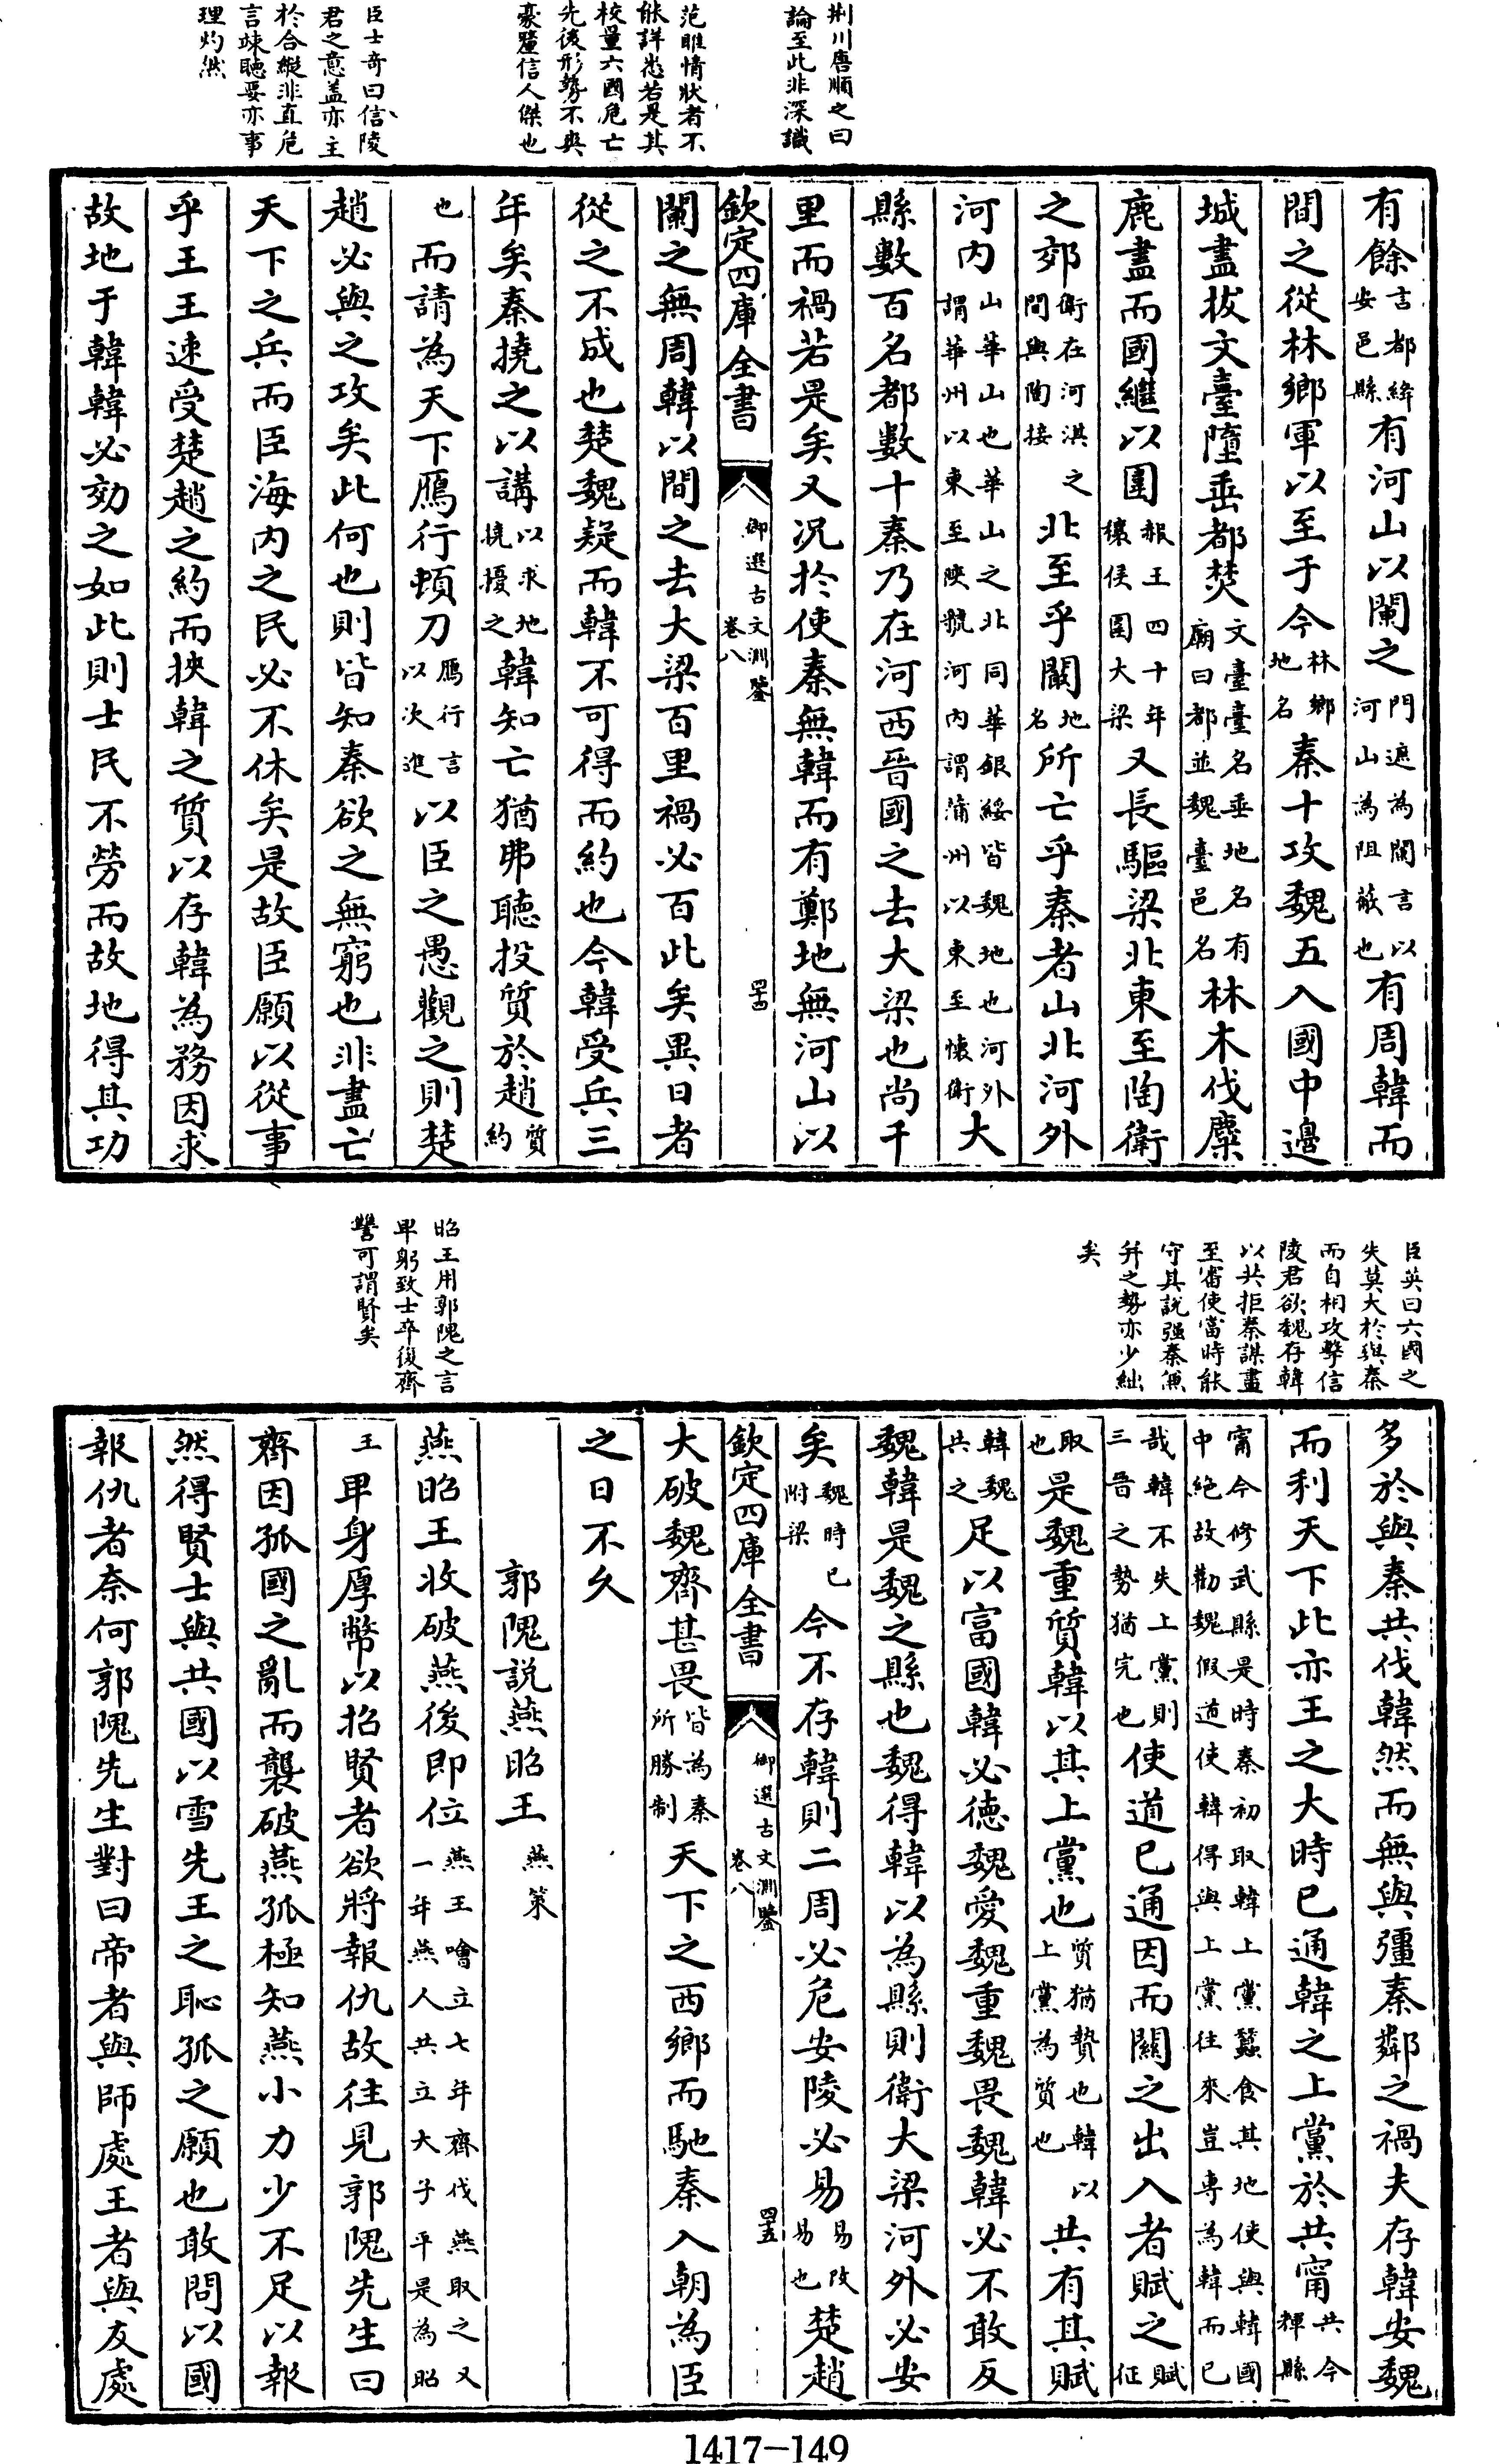 荆川唐順之曰
論至此非深識
范雎情狀者不
能詳悉若是其
校量六國危亡
先後形勢不與
豪釐信人傑也
臣士奇曰信陵
君之意蓋亦主
於合縱非直危
言竦聽要亦事
理灼然
有餘言都絳安邑縣有河山以闌之門遮為闌言以河山為阻蔽也有周韓而
間之從林鄉軍以至于今林鄉地名秦十攻魏五入國中邊
城盡拔文臺墮垂都焚文臺臺名垂地名有廟曰都並魏臺邑名林木伐麋
鹿盡而國繼以圍赧王四十年穰侯圍大梁又長驅梁北東至陶衛
之郊衛在河淇之間與陶接北至乎闞地名所亡乎秦者山北河外
河內山華山也華山之北同華銀綏皆魏地也河外謂華州以東至陜虢河內謂蒲州以東至懷衛大
縣數百名都數十秦乃在河西晉國之去大梁也尚千
里而禍若是矣又况於使秦無韓而有鄭地無河山以
欽定四庫全書 御選古文淵鑒 卷八 四十四
闌之無周韓以間之去大梁百里禍必百此矣異日者
從之不成也楚魏疑而韓不可得而約也今韓受兵三
年矣秦撓之以講以求地撓擾之韓知亡猶弗聽投質於趙質約
也而請為天下鴈行頓刀鴈行言以次進以臣之愚觀之則楚
趙必與之攻矣此何也則皆知秦欲之無窮也非盡亡
天下之兵而臣海内之民必不休矣是故臣願以從事
乎王王速受楚趙之約而挾韓之質以存韓為務因求
故地于韓韓必効之如此則士民不勞而故地得其功
臣英曰六國之
失莫大於與秦
而自相攻擊信
陵君欲魏存韓
以共拒秦謀畫
至審使當時能
守其說强秦兼
并之勢亦少絀
矣
昭王用郭隗之言
卑躬致士卒復齊
讐可謂賢矣
多於與秦共伐韓然而無與彊秦鄰之禍夫存韓安魏
而利天下此亦王之大時已通韓之上黨於共甯共今輝縣
甯今修武縣是時秦初取韓上黨蠶食其地使與韓國中絶故勸魏假道使韓得與上黨往來豈專為韓而已
哉韓不失上黨則三晉之勢猶完也使道已通因而關之出入者賦之賦征
取也是魏重質韓以其上黨也質猶贄也韓以上黨為質也共有其賦
韓魏共之足以富國韓必德魏愛魏重魏畏魏韓必不敢反
魏韓是魏之縣也魏得韓以為縣則衛大梁河外必安
矣魏時已附梁今不存韓則二周必危安陵必易易攺易也楚趙
欽定四庫全書 御選古文淵鑒 卷八 四十五
大破魏齊甚畏皆為秦所勝制天下之西鄉而馳秦入朝為臣
之日不久
郭隗説燕昭王燕策
燕昭王收破燕後即位燕王噲立七年齊伐燕取之又一年燕人共立太子平是為昭
王卑身厚幣以招賢者欲將報仇故往見郭隗先生曰
齊因孤國之亂而襲破燕孤極知燕小力少不足以報
然得賢士與共國以雪先王之恥孤之願也敢問以國
報仇者奈何郭隗先生對曰帝者與師處王者與友處
1417-149